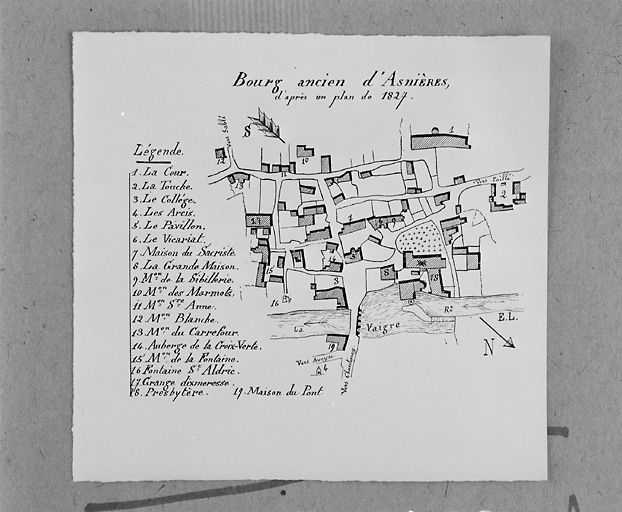 Bourg ancien d'Asnières,
d'après un plan de 1827.
Légende.
1. La Cour.
2. La Touche.
3. Le Collége.
4. Les Arcis.
5. Le Pavillon.
6. Le Vicariat.
7 Maison du Sacriste.
8. La Grande Maison.
9 Mon de la Sibillerie.
10 Mon des Marmots.
11 Mon Ste Anne.
12 Mon Blanche.
13 Mon du Carrefour.
14. Auberge de la Croix-Verte.
15. Mon de la Fontaine.
16 Fontaine St Aldric.
17 Grange dixmeresse.
18. Presbytère.
19. Maison du Pont
S
Vers Sablé
12
10
1
13
11
Vers Poillé
2
15
16
8
18
3
La
Vaigre
Re
E.L.
N
19
4